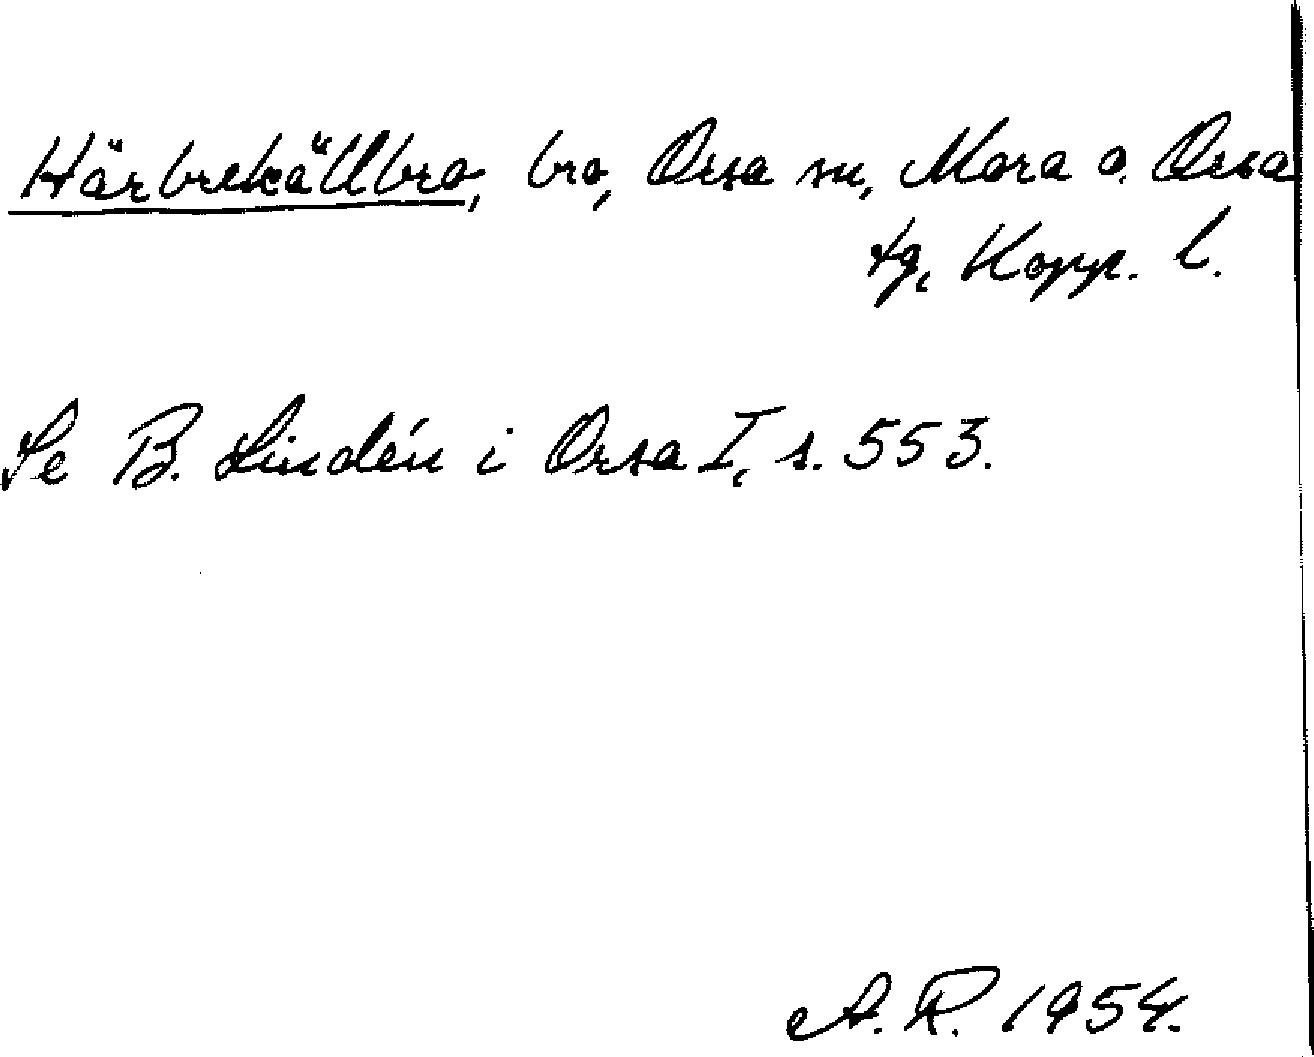 Härbrekällbro, bro, Orsa sn, Mora o. Orsa
tg, Kopp. l.
Se B. Lindén i Orsa I, s. 553.
A. R. 1954.